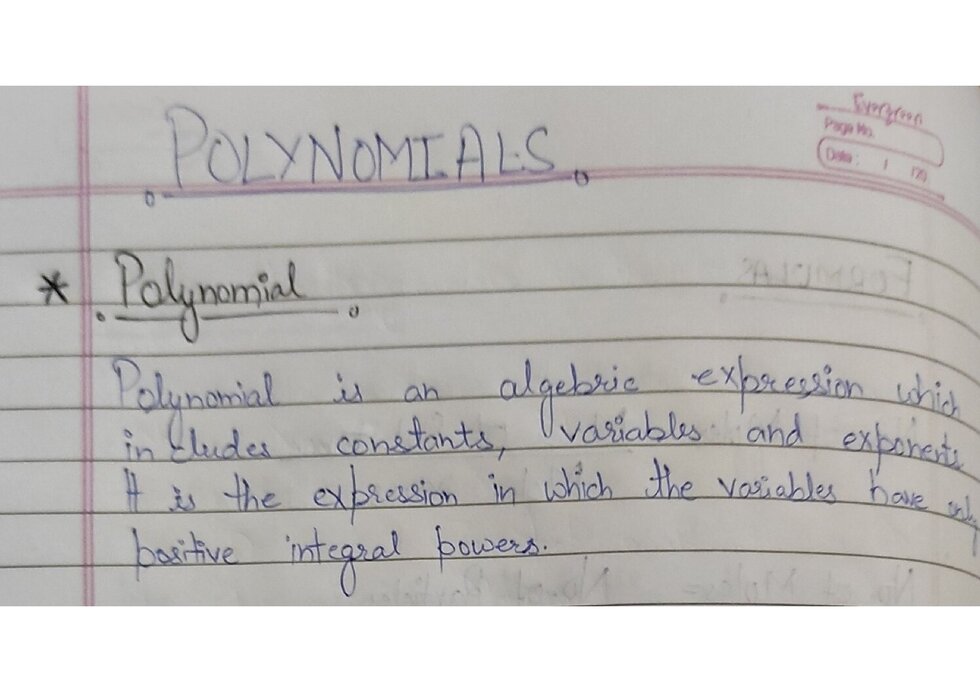 Evergreen
Page No.
Date: / /20
POLYNOMIALS
* Polynomial
Polynomial is an algebric expression which
includes constants, variables and exponents
It is the expression in which the variables have only
positive integral powers.